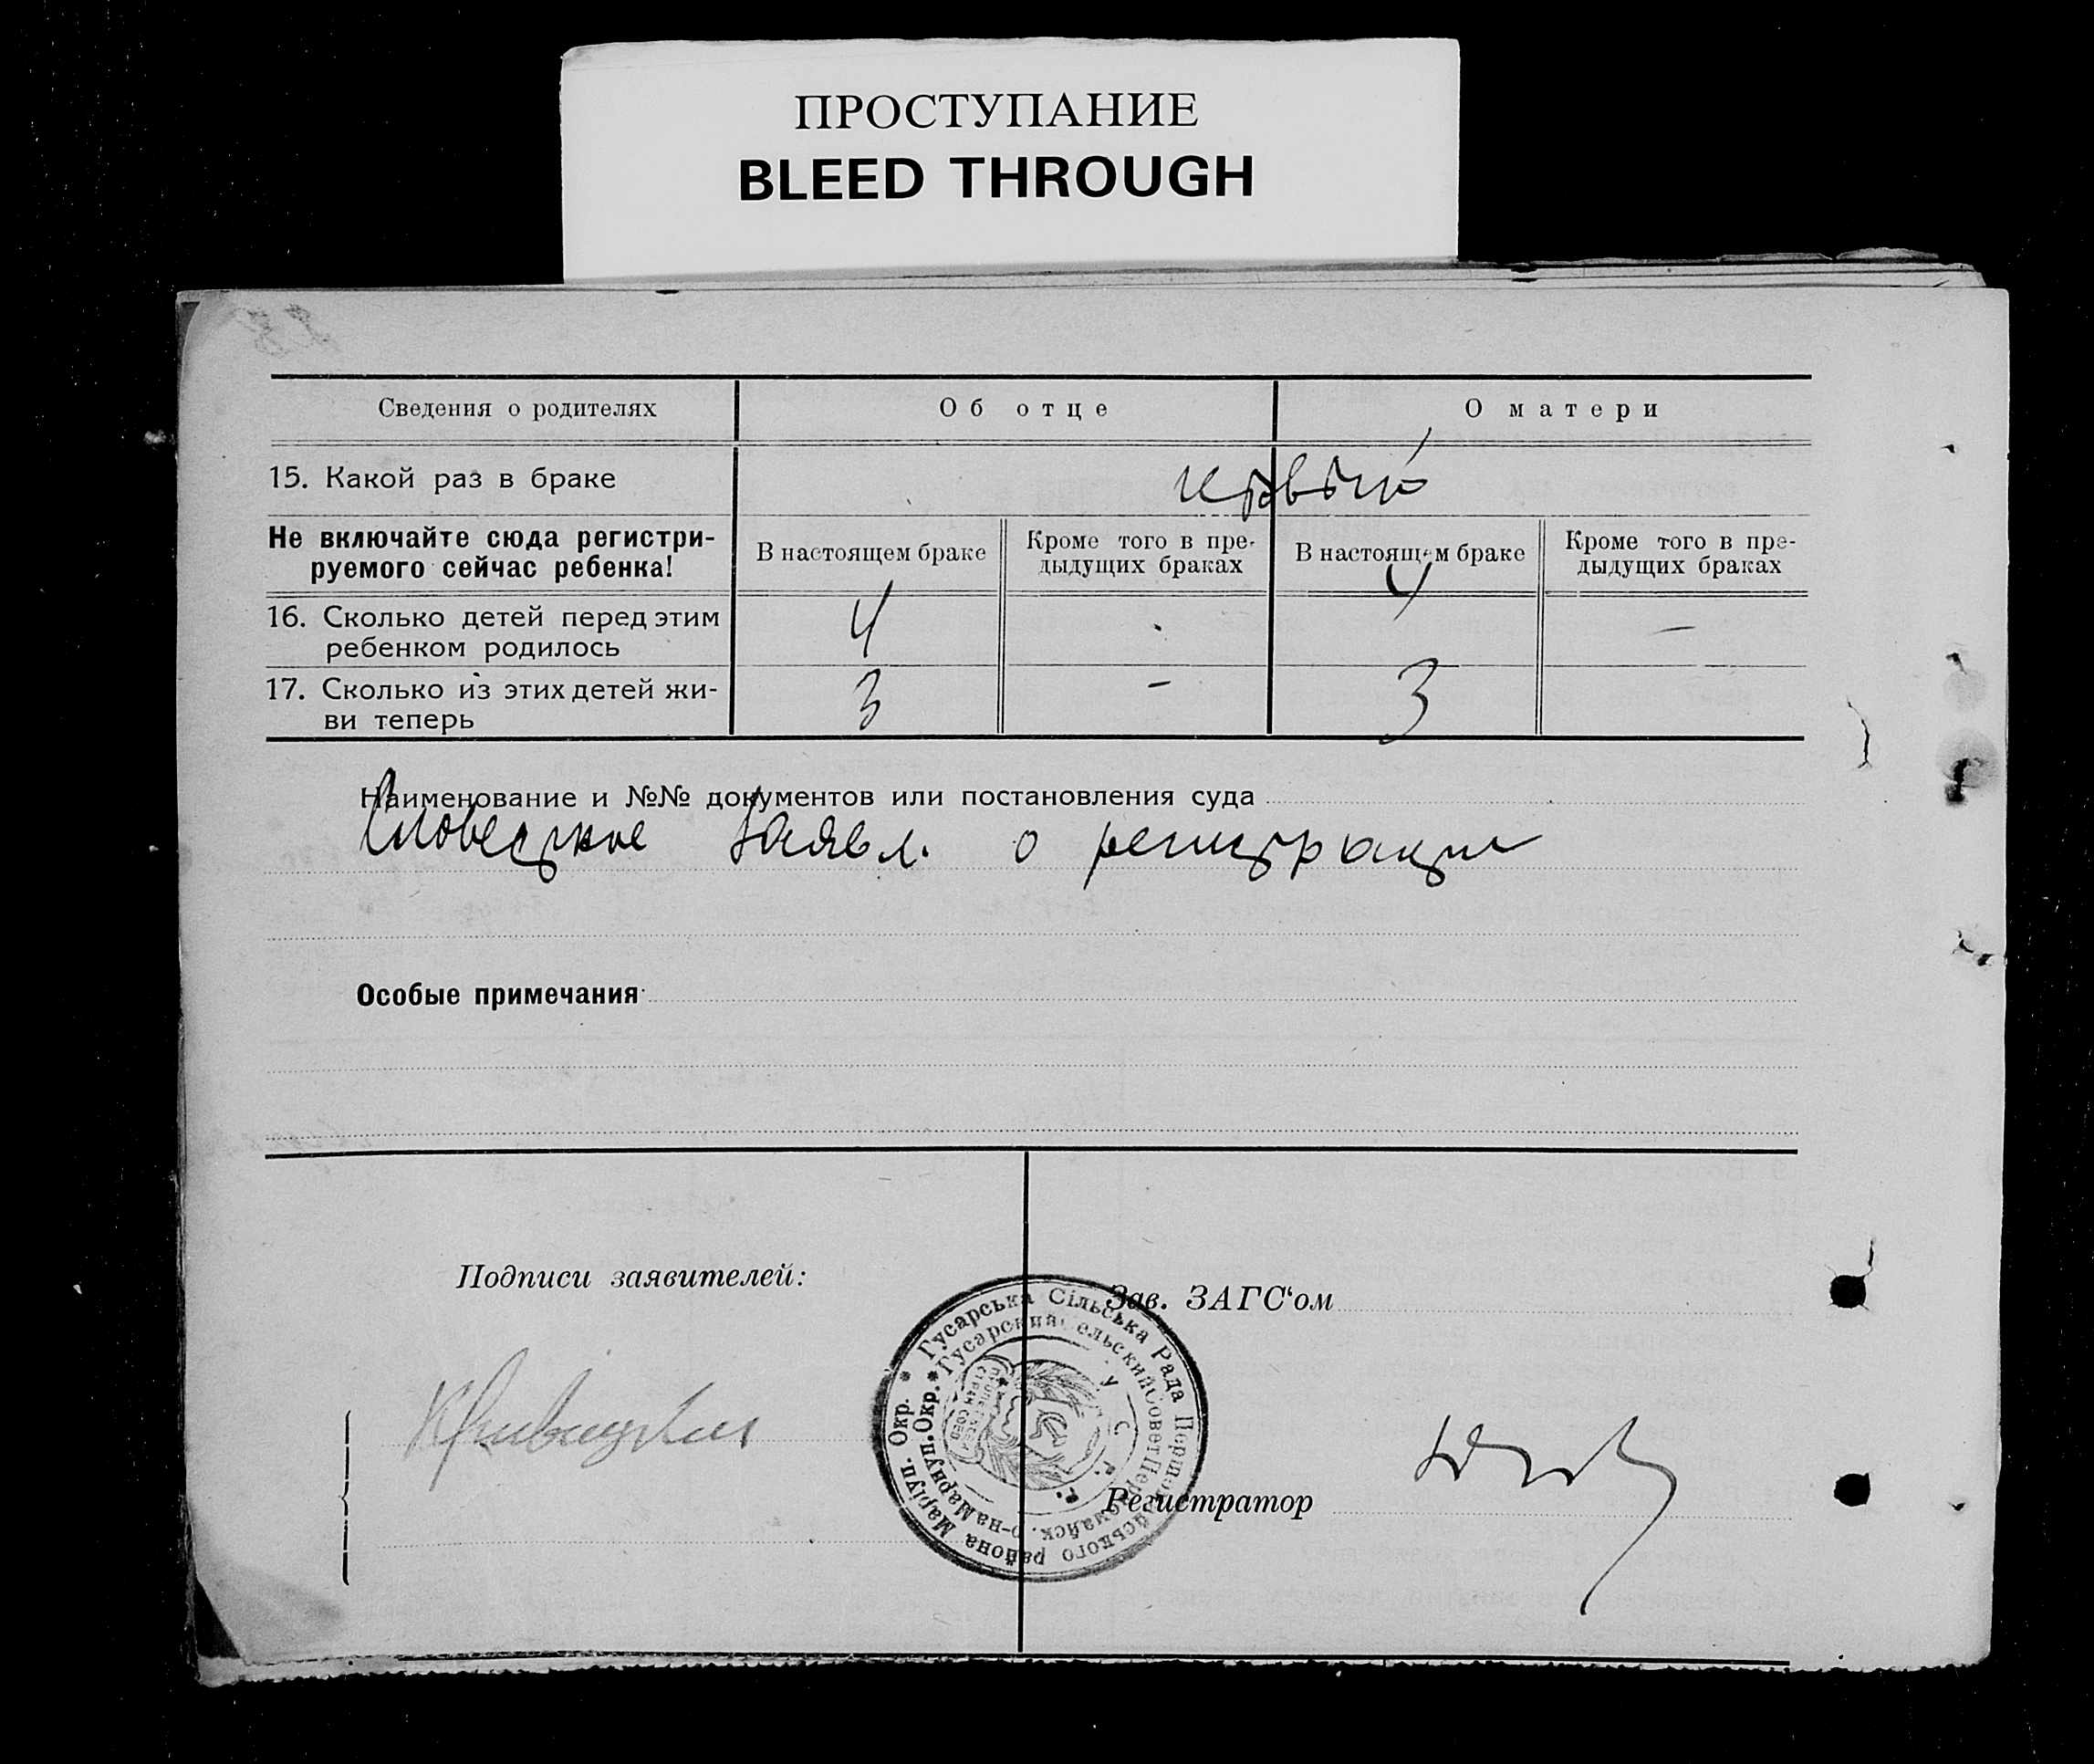 ПРОСТУПАНИЕ
BLEED THROUGH
Сведения о родителях
Об отце
О матери
15. Какой раз в браке
первый
Не включайте сюда регистри-
руемого сейчас ребенка!
В настоящем браке
Кроме того в пре-
дыдущих браках
В настоящем браке
Кроме того в пре-
дыдущих браках
16. Сколько детей перед этим
ребенком родилось
4
-
4
—
17. Сколько из этих детей жи-
ви теперь
3
-
3
Наименование и №№ документов или постановления суда
Словесное заявл. о регистрации
Особые примечания
Подписи заявителей:
Зав. ЗАГС'ом
Регистратор
* Гусарська Сільська Рада Першомайського района Маріуп. Окр.
* Гусарский Сельский Совет Первомайск. р-на Мариуп. Окр.
У. С. Р. Р.